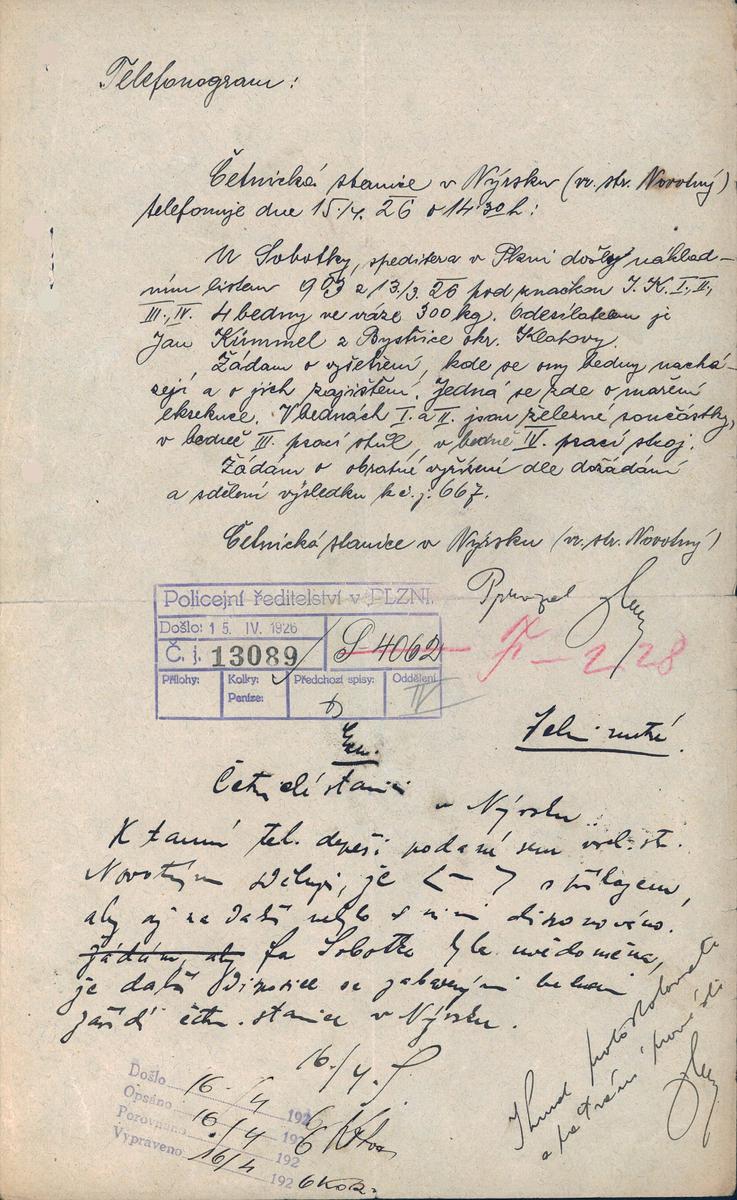 Telefonogram:
Četnická stanice v Nýrsku (vr. str. Novotný)
telefonuje dne 15./4. 26 o 14 30 h:
U Sobotky, speditera v Plzni došly náklad-
ním listem 993 z 13./3. 26 pod značkou J. K. I., II.,
III., IV. 4 bedny ve váze 300 kg. Odesilatelem je
Jan Kümmel z Bystřice okr. Klatovy.
Žádám o vyšetření, kde se ony bedny nachá-
zejí, a o jich zajištění. Jedná se zde o maření
eksekuce. V bednách I. a II. jsou železné součástky,
v bedně III. prací stůl, v bedně IV. prací stroj.
Žádám o obratné vyřízení dle dožádání
a sdělení výsledku k č. j. 667.
Četnická stanice v Nýrsku (vr. str. Novotný)
Policejní ředitelství v PLZNI.
Došlo: 15. IV. 1926
Č. j. 13089
S 4062
F - 2 28
Přílohy:
Kolky:
Peníze:
Předchozí spisy:
Oddělení
IV
Četnické stanici
v Nýrsku.
K tamní tel. depeši podané sem vrch. st.
Novotným sděluji, že
aby
žádám, aby fa Sobotka byla uvědoměna,
že další disposice se zabavenými bednami
zařídí četn. stanice v Nýrsku.
16./4.
Došlo 16./4 1926
Opsáno 16./4 1926
Porovnáno 192
Vypraveno 16/4 1926
Ihned protokolovati
a pátrání provésti